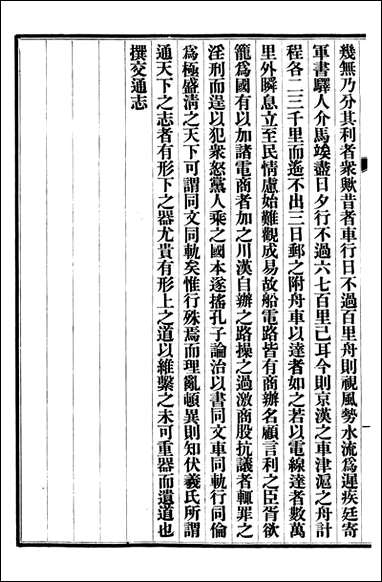 幾無乃分其利者衆歟昔者車行日不過百里舟則視風勢水流爲遲疾廷寄
軍書驛人介馬竢盡日夕行不過六七百里已耳今則京漢之車津滬之舟計
程各二三千里而遙不出三日郵之附舟車以達者如之若以電線達者數萬
里外瞬息立至民情慮始難觀成易故船電路皆有商辦名顧言利之臣胥欲
籠爲國有以加諸電商者加之川漢自辦之路操之過激商股抗議者輒罪之
淫刑而逞以犯衆怒黨人乘之國本遂搖孔子論治以書同文車同軌行同倫
爲極盛淸之天下可謂同文同軌矣惟行殊焉而理亂頓異則知伏羲氏所謂
通天下之志者有形下之器尤貴有形上之道以維繫之未可重器而遺道也
撰交通志